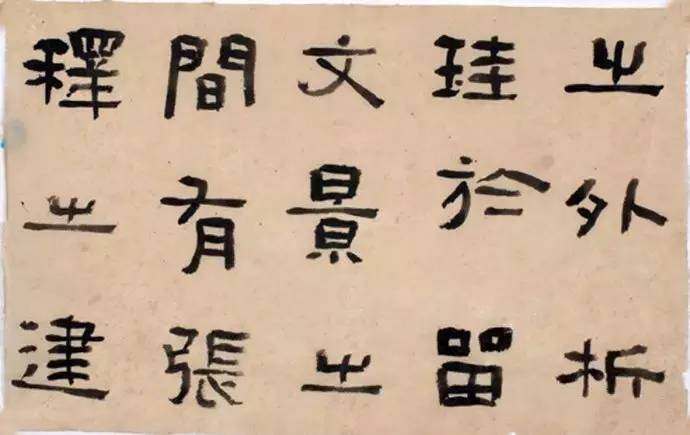 之外析
珪於留
文景之
間有張
釋之建